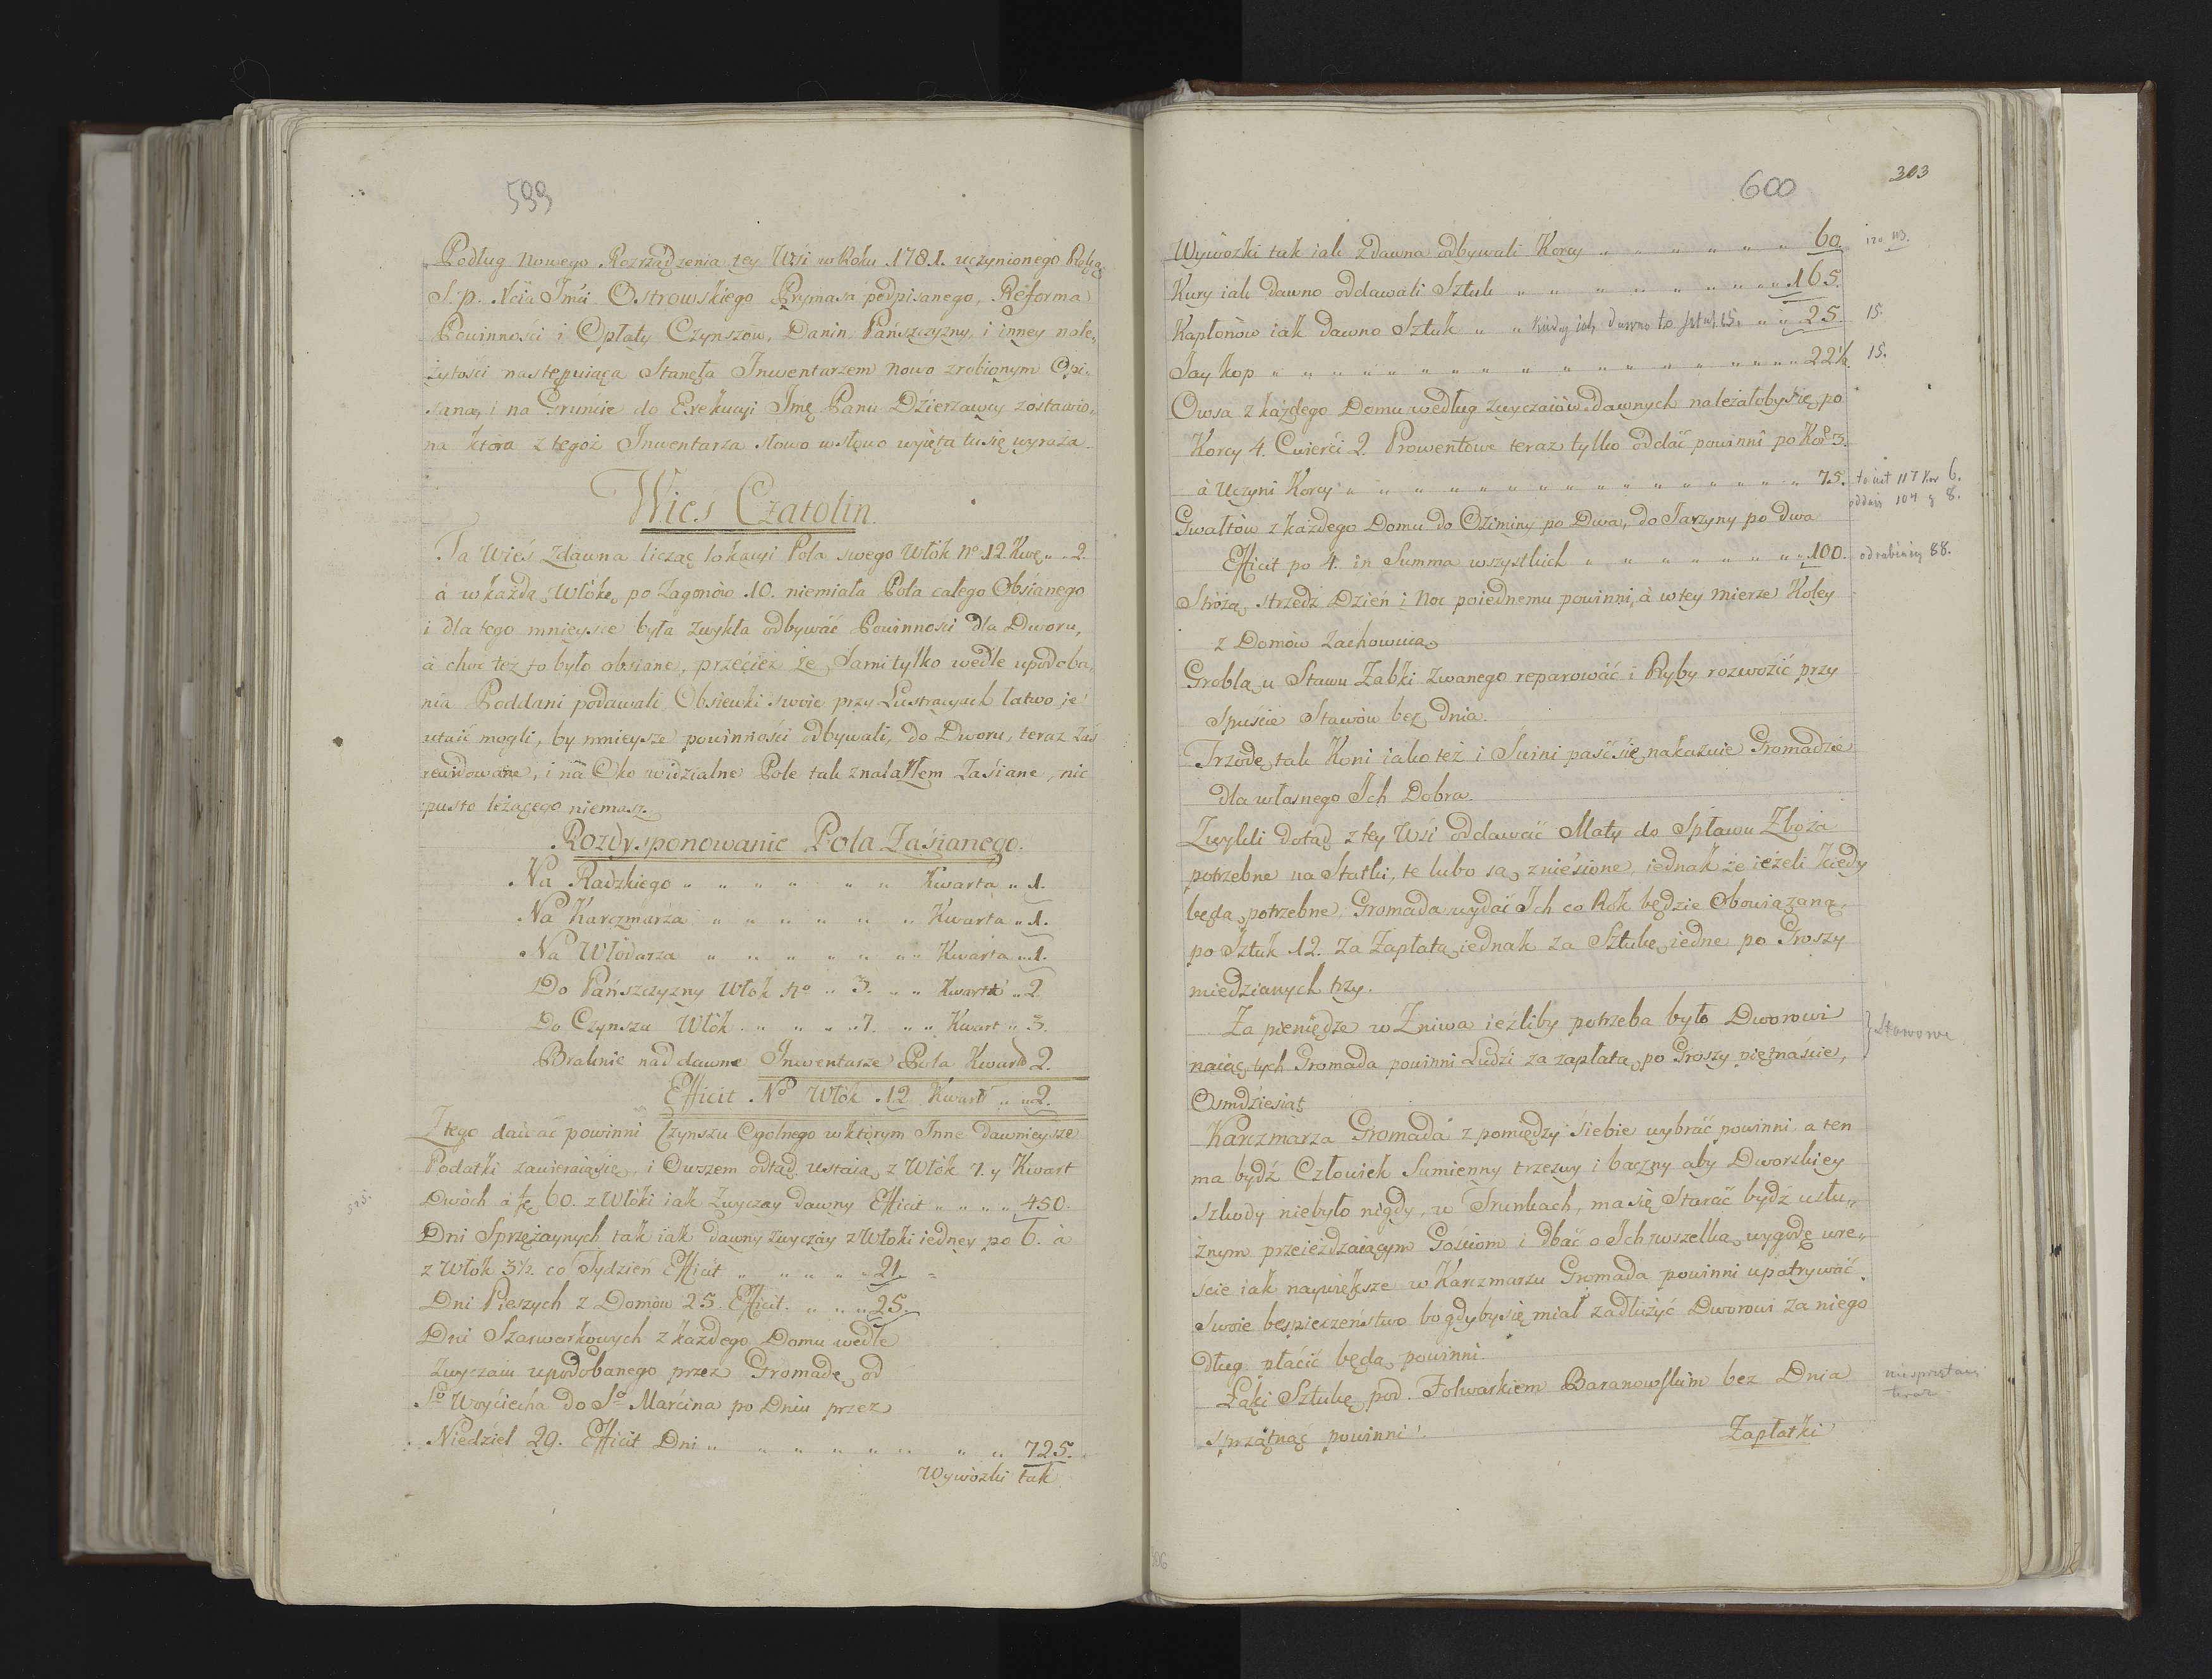 599
Podług Nowego Rozrządzenia tey Wsi w Roku 1781. uczynionego Ręką
S. p. Xcia Jmci Ostrowskiego Prymasa podpisanego, Reforma
Powinności i Opłaty Czynszow, Danin Pańszczyzny, i inney nale„
żytości następuiąca Stanęła Inwentarzem Nowo zrobionym Opi„
sana, i na Gruncie do Exekucyi Jmę Panu Dzierzawcy zostawio„
na ktora z tegoż Inwentarza słowo w słowo wyięta tu się wyraża.
Wies Czatolin.
Ta Wieś Zdawna licząc lokacyi Pola swego Włok No 12 Kwę „ 2
á w każdą Włokę po Zagonów 10. niemiała Pola całego Obsianego
i dla tego mnieysze była Zwykła odbywáć Powinności dla Dworu,
á choc też to było obsiane, przeciez że Sami tylko wedle upodoba„
nia Poddani podawali Obsiewki swoie przy Lustracyach łatwo je
utaić mogli, by mnieysze powinności odbywali, do Dworu, teraz Zaś
rewidowane, i na Oko widzialne Pole tak znalazłem Zasiane, nic
pusto leżącego niemasz.
Rozdysponowanie Pola Zasianego.
Na Radzkiego „ „ „ „ „ „ Kwarta „ 1.
Na Karczmarza „ „ „ „ „ „ Kwarta „ 1.
Na Włodarza „ „ „ „ „ „ Kwarta „ 1.
Do Pańszczyzny Włok No „ 3. „ „ Kwarta „ 2
Do Czynszu Włok „ „ „ „ 7. „ „ Kwart „ 3.
Braknie nad dawne Inwentarze Pola Kwart 2.
Efficit No Włok 12 Kwart „ „ 2.
Z tego dawać powinni Czynszu Ogolnego w ktorym Inne dawnieysze
Podatki zawieraią się, i Owszem odtąd ustaią z Włok 7. y Kwart
Dwoch á fę 60. z Włoki iak Zwyczay dawny Efficit „ „ „ „ 450.
Dni Sprzężaynych tak iak dawny zwyczay z Włoki iedney po 6. á
z Włok 3½. co Tydzień Efficit „ „ „ „ 21 „
Dni Pieszych z Domów 25. Efficit. „ „ „ 25.
Dni Szarwarkowych z każdego Domu wedle
Zwyczaiu upodobanego przez Gromadę od
So Woyciecha do So Marcina po Dniu przez
Niedziel 29. Efficit Dni „ „ „ „ „ „ „ „ 725.
Wywozki tak
600
303
Wywózki tak iak z dawna odbywali Korcy „ „ „ „ „ „ 60.
Kury iak dawno oddawali Sztuk „ „ „ „ „ „ „ „ „ 165.
Kapłonów iak dawno Sztuk „ „ kiedy iak dawno to sztuk 15. „ „ 25. 15.
Jay kop „ „ „ „ „ „ „ „ „ „ „ „ „ „ „ „ „ 22½. 15.
Owsa z każdego Domu według zwyczaiów dawnych należałoby się po
Korcy 4. Cwierci 2. Prowentowe teraz tylko oddać powinni po Kor 3.
á Uczyni Korcy „ „ „ „ „ „ „ „ „ „ „ „ „ „ „ 75. to iest 117 kor 6.
oddaią 104 g 8.
Gwałtów z każdego Domu do Oziminy po Dwa, do Jarzyny po dwa
Efficit po 4. in Summa wszystkich „ „ „ „ „ „ „ „ 100. odrabiaią 88.
Stróżą strzedz Dzień i Noc poiednemu powinni, á w tey mierze Koley
z Domów zachowuią
Groblą u Stawu Zabki zwanego reparowáć i Ryby rozwozić przy
Spuście Stawów bez dnia.
Trzodę tak Koni iako też i Swini paść się nakazuie Gromadzie
dla własnego Ich Dobra.
Zwykli dotąd z tey Wsi oddawać Maty do Spławu Zboża
potrzebne na Statki, te lubo są zniesione, iednak że ieżeli kiedy
będą potrzebne, Gromada wydać Ich co Rok będzie Obowiązaną,
po Sztuk 12. za Zapłatą iednak za Sztukę iedne po Groszy
miedzianych trzy.
Za pieniędze w Zniwa ieżliby potrzeba było Dworowi
naiąc tych Gromada powinni Ludzi za zapłatą po Groszy piętnaście,
Osmdziesiąt
Karczmarza Gromada z pomiędzy siebie wybráć powinni, a ten
ma bydź Człowiek Sumienny trzezwy i baczny aby Dworskiey
szkody niebyło nigdy, w Trunkach, ma się Staráć bydź usłu„
żnym przeieżdzaiącym Gościom i dbáć o Ich wszelką wygodę wre„
scie iak naywiększe w Karczmarzu Gromada powinni upatrywáć
Swoie bespieczeństwo bo gdyby się miał zadłużyć Dworowi za niego
dług płácić będą powinni.
Łąki Sztukę pod Folwarkiem Baranowskim bez Dnia
sprzątnąć powinni.
nie sprzątaią
teraz
Zapłatki